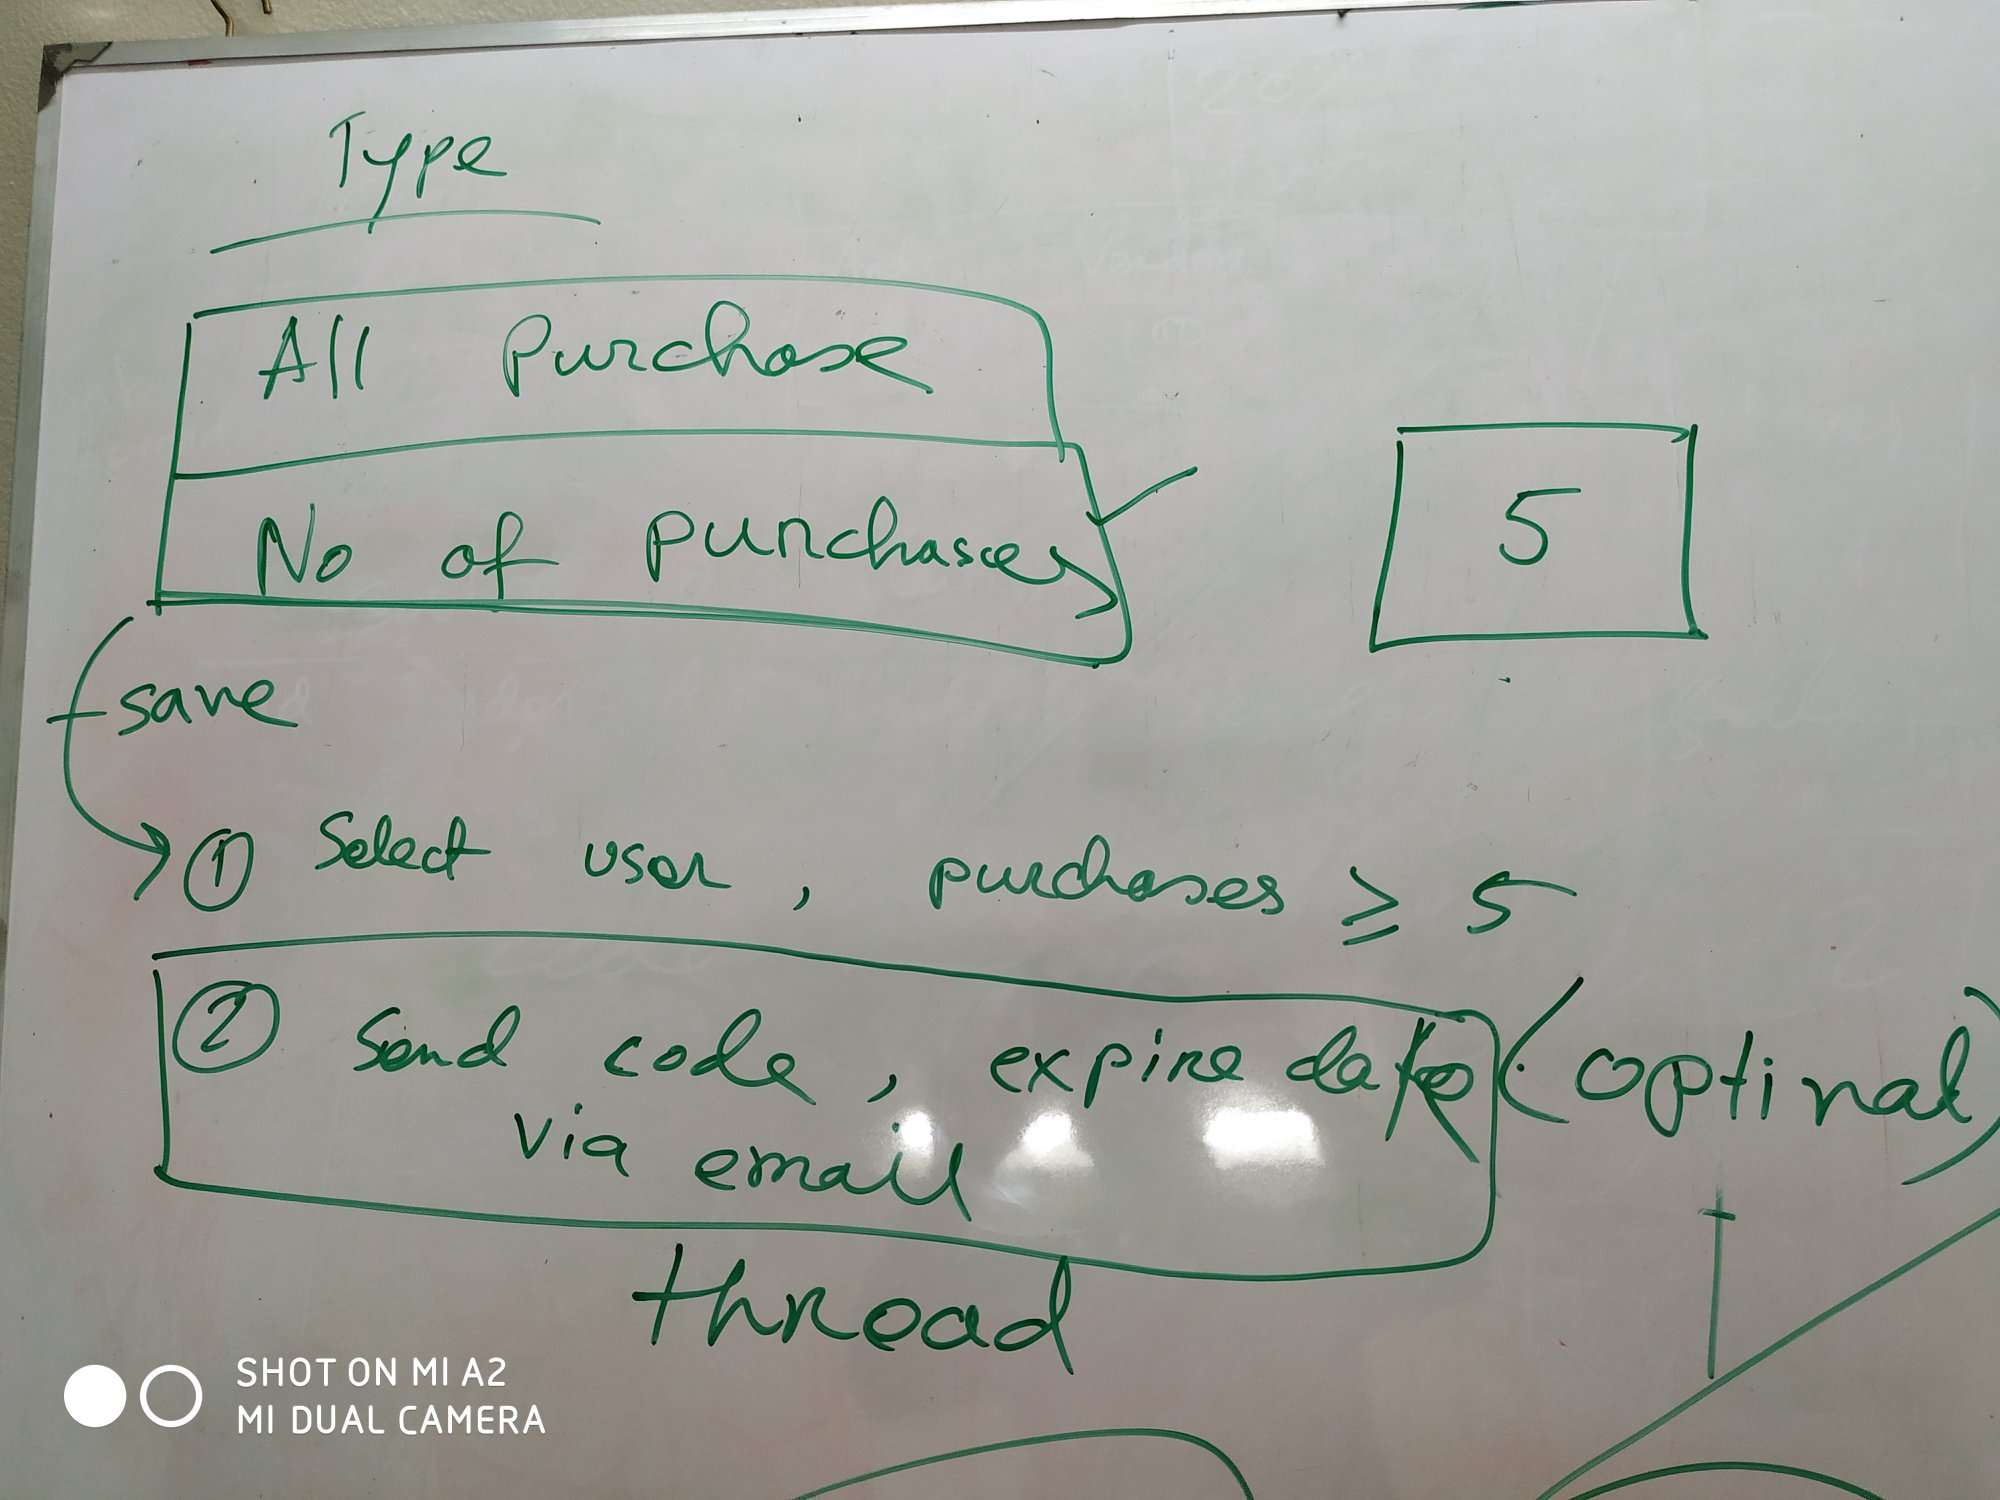 Type
All Purchase
No of purchases
5
save
① Select user, purchases ≥ 5
② Send code, expire date (optinal)
via email
thread
SHOT ON MI A2
MI DUAL CAMERA